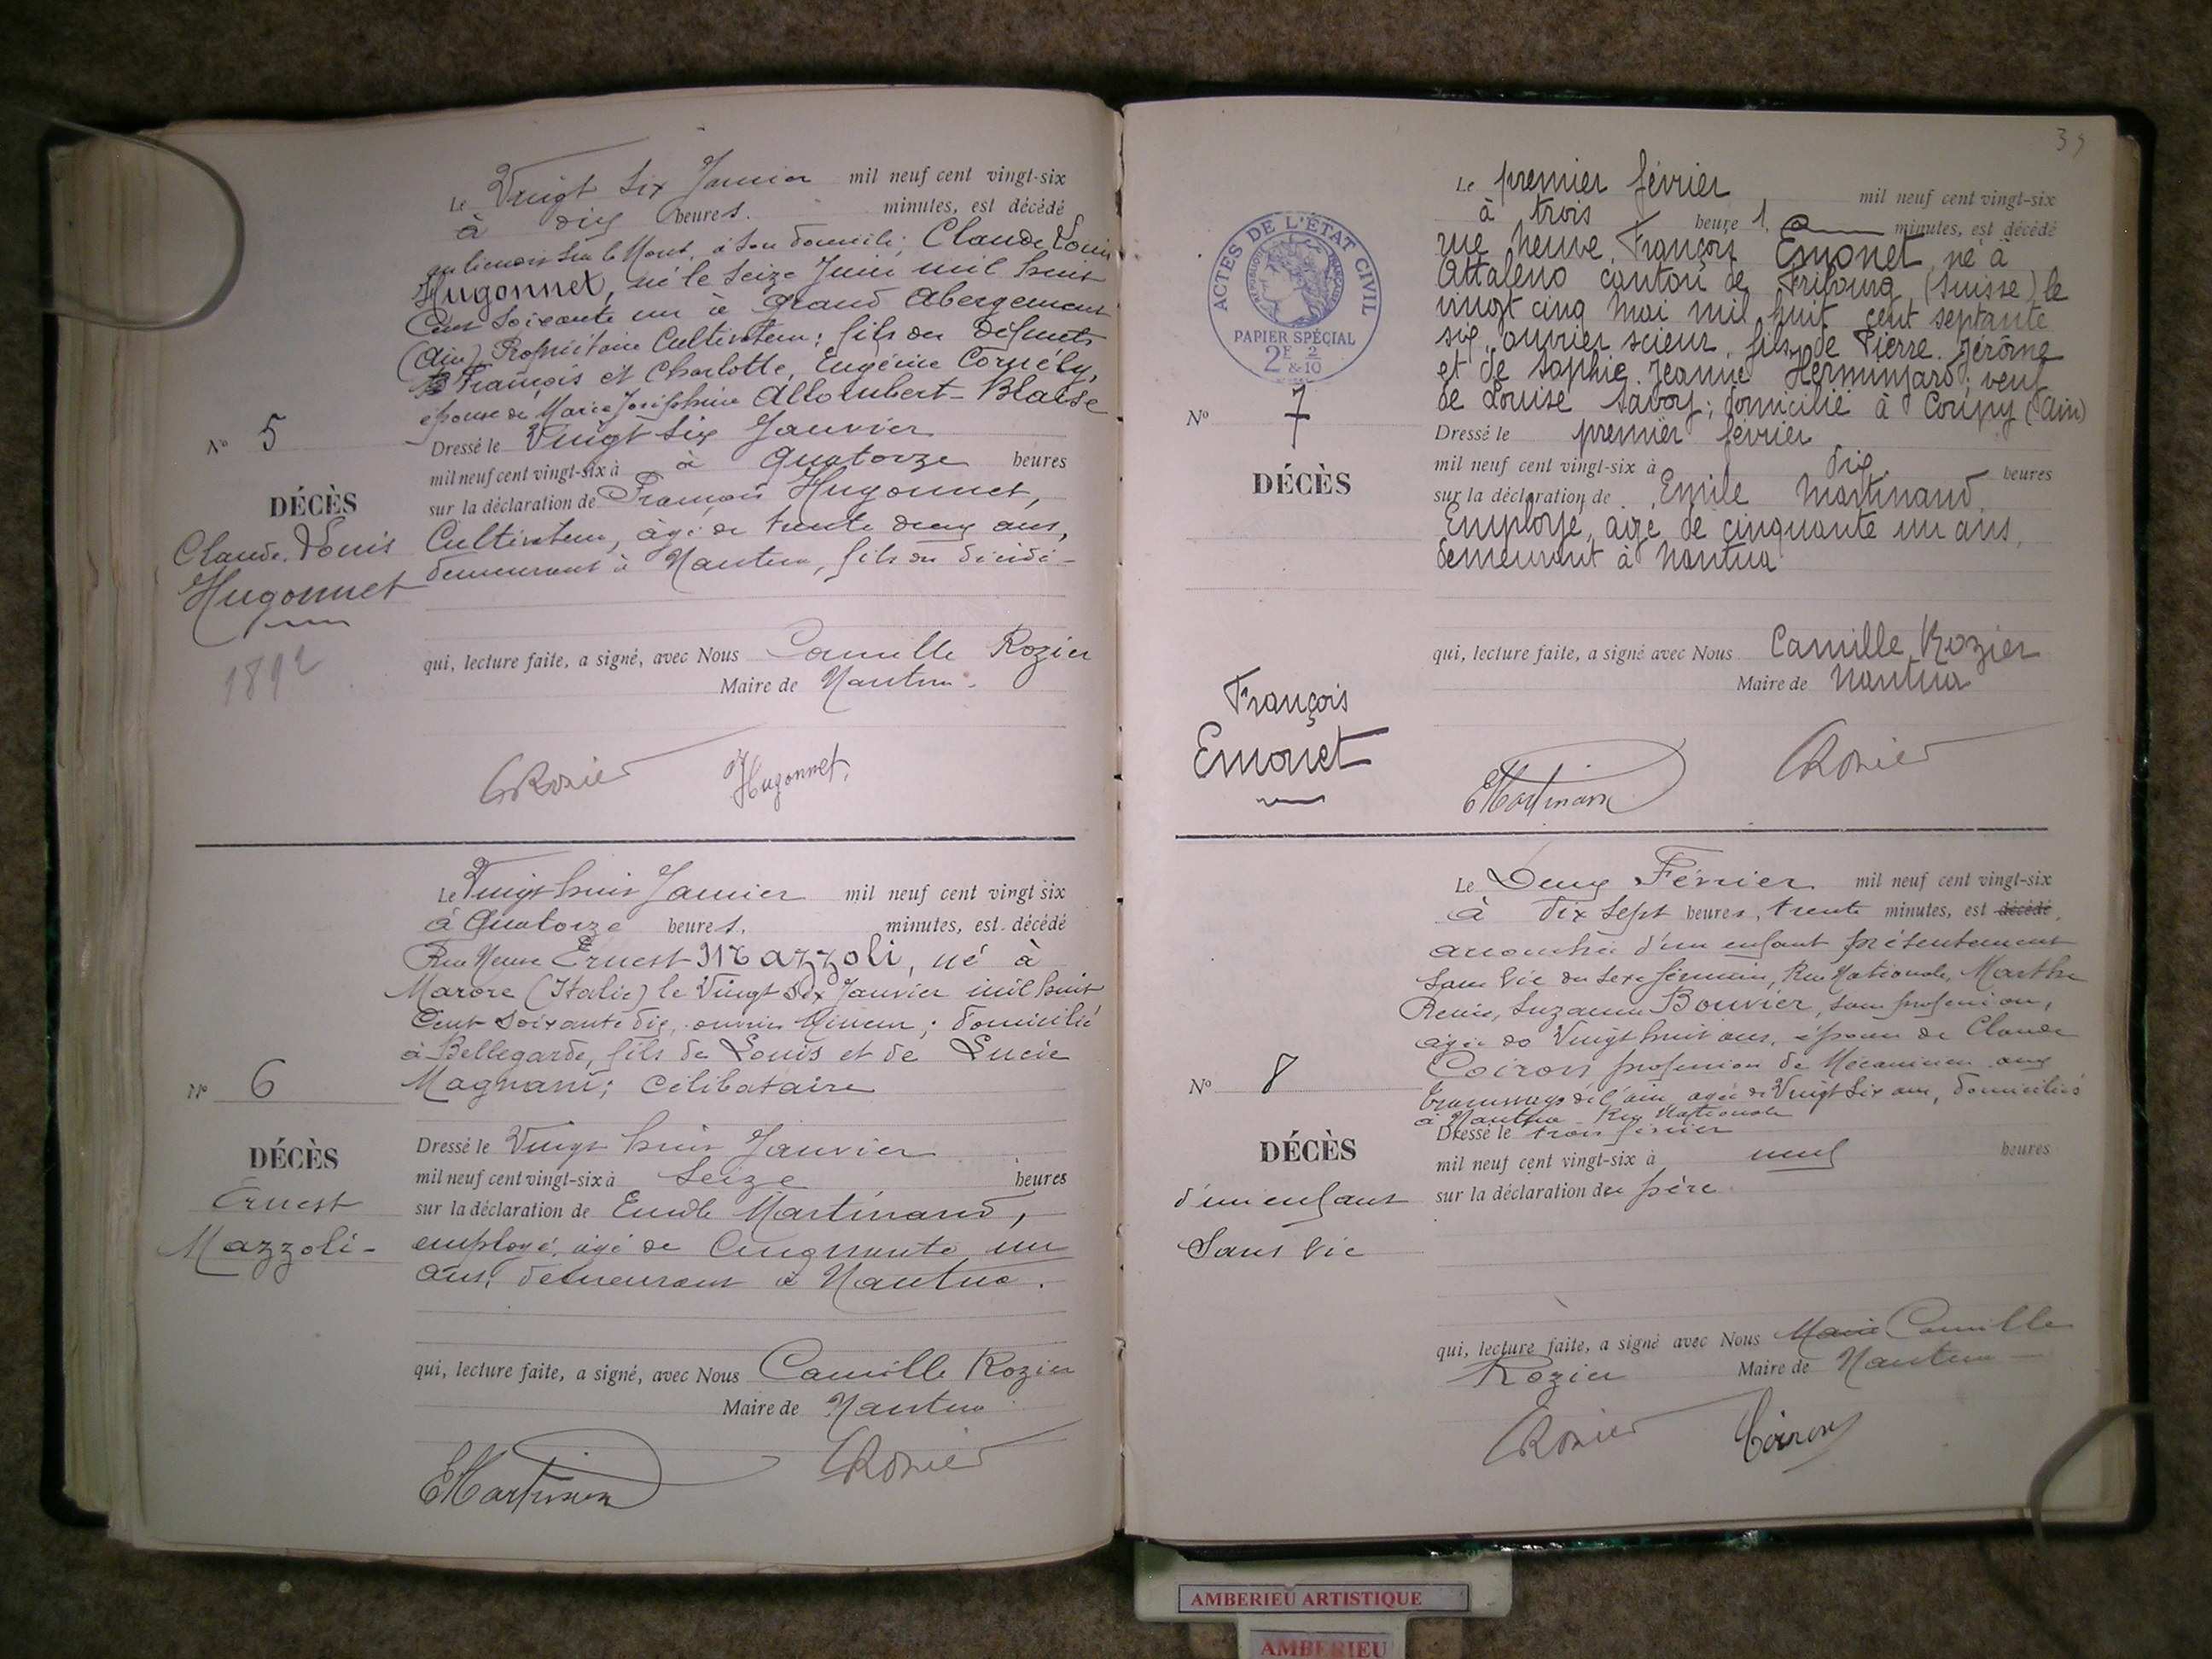 Le Vingt Six Janvier mil neuf cent vingt-six
à dix heures. minutes, est décédé
au lieudit Sur le Mont, à son domicile, Claude Louis
Hugonnet, né le Seize Juin mil huit
Cent Soixante un à Grand Abergement
(Ain) Propriétaire Cultivateur; fils des défunts
François et Charlotte, Eugénie Cornély,
époux de Marie Joséphine Allombert-Blaise
Nº 5
DÉCÈS
Claude. Louis
Hugonnet
1892
Dressé le Vingt Six Janvier
mil neuf cent vingt-six à à Quatorze heures
sur la déclaration de François Hugonnet,
Cultivateur, âgé de trente deux ans,
demeurant à Nantua, fils du décédé-
qui, lecture faite, a signé, avec Nous Camille Rozier
Maire de Nantua.
CRozier Hugonnet.
Le Vingt huit Janvier mil neuf cent vingt six
à Quatorze heures, minutes, est décédé
Rue Neuve Ernest Mazzoli, né à
Marore (Italie) le Vingt Six Janvier mil huit
Cent Soixante dix, ouvrier Mineur; domicilié
à Bellegarde, fils de Louis et de Lucie
Magnani; célibataire
Nº 6
DÉCÈS
Ernest
Mazzoli-
Dressé le Vingt huit Janvier
mil neuf cent vingt-six à Seize heures
sur la déclaration de Emile Martinand,
employé, âgé de Cinquante un
ans, demeurant à Nantua.
qui, lecture faite, a signé, avec Nous Camille Rozier
Maire de Nantua
EMartinand CRozier
ACTES DE L'ÉTAT CIVIL
RÉPUBLIQUE FRANÇAISE
PAPIER SPÉCIAL
2F 2/10
&
Le premier février mil neuf cent vingt-six
à trois heure s, minutes, est décédé
rue neuve François Emonet, né à
Attalens canton de Fribourg (Suisse) le
vingt cinq mai mil huit cent septante
six, ouvrier scieur, fils de Pierre. Jérôme
et de Sophie. Jeanne Herminjard; veuf
de Louise Savoy; domicilié à Coupy (Ain)
Nº 7
DÉCÈS
François
Emonet
Dressé le premier février
mil neuf cent vingt-six à dix heures
sur la déclaration de Emile Martinand
Employé, âgé de cinquante un ans,
demeurant à Nantua
qui, lecture faite, a signé avec Nous Camille Rozier
Maire de Nantua
EMartinand CRozier
Le Deux Février mil neuf cent vingt-six
à dix sept heures, trente minutes, est décédé
accouchée d'un enfant présentement
sans vie du sexe féminin, Rue Nationale, Marthe
Renée, Suzanne Bouvier, sans profession,
agée de Vingt huit ans, épouse de Claude
Coiron profession de Mécanicien aux
tramways de l'ain, agé de Vingt Six ans, domiciliés
à Nantua Rue Nationale
Nº 8
DÉCÈS
d'un enfant
Sans vie
Dressé le trois février
mil neuf cent vingt-six à neuf heures
sur la déclaration du père
qui, lecture faite, a signé avec Nous Maire Camille
Rozier Maire de Nantua
CRozier Coiron
AMBERIEU ARTISTIQUE
AMBERIEU